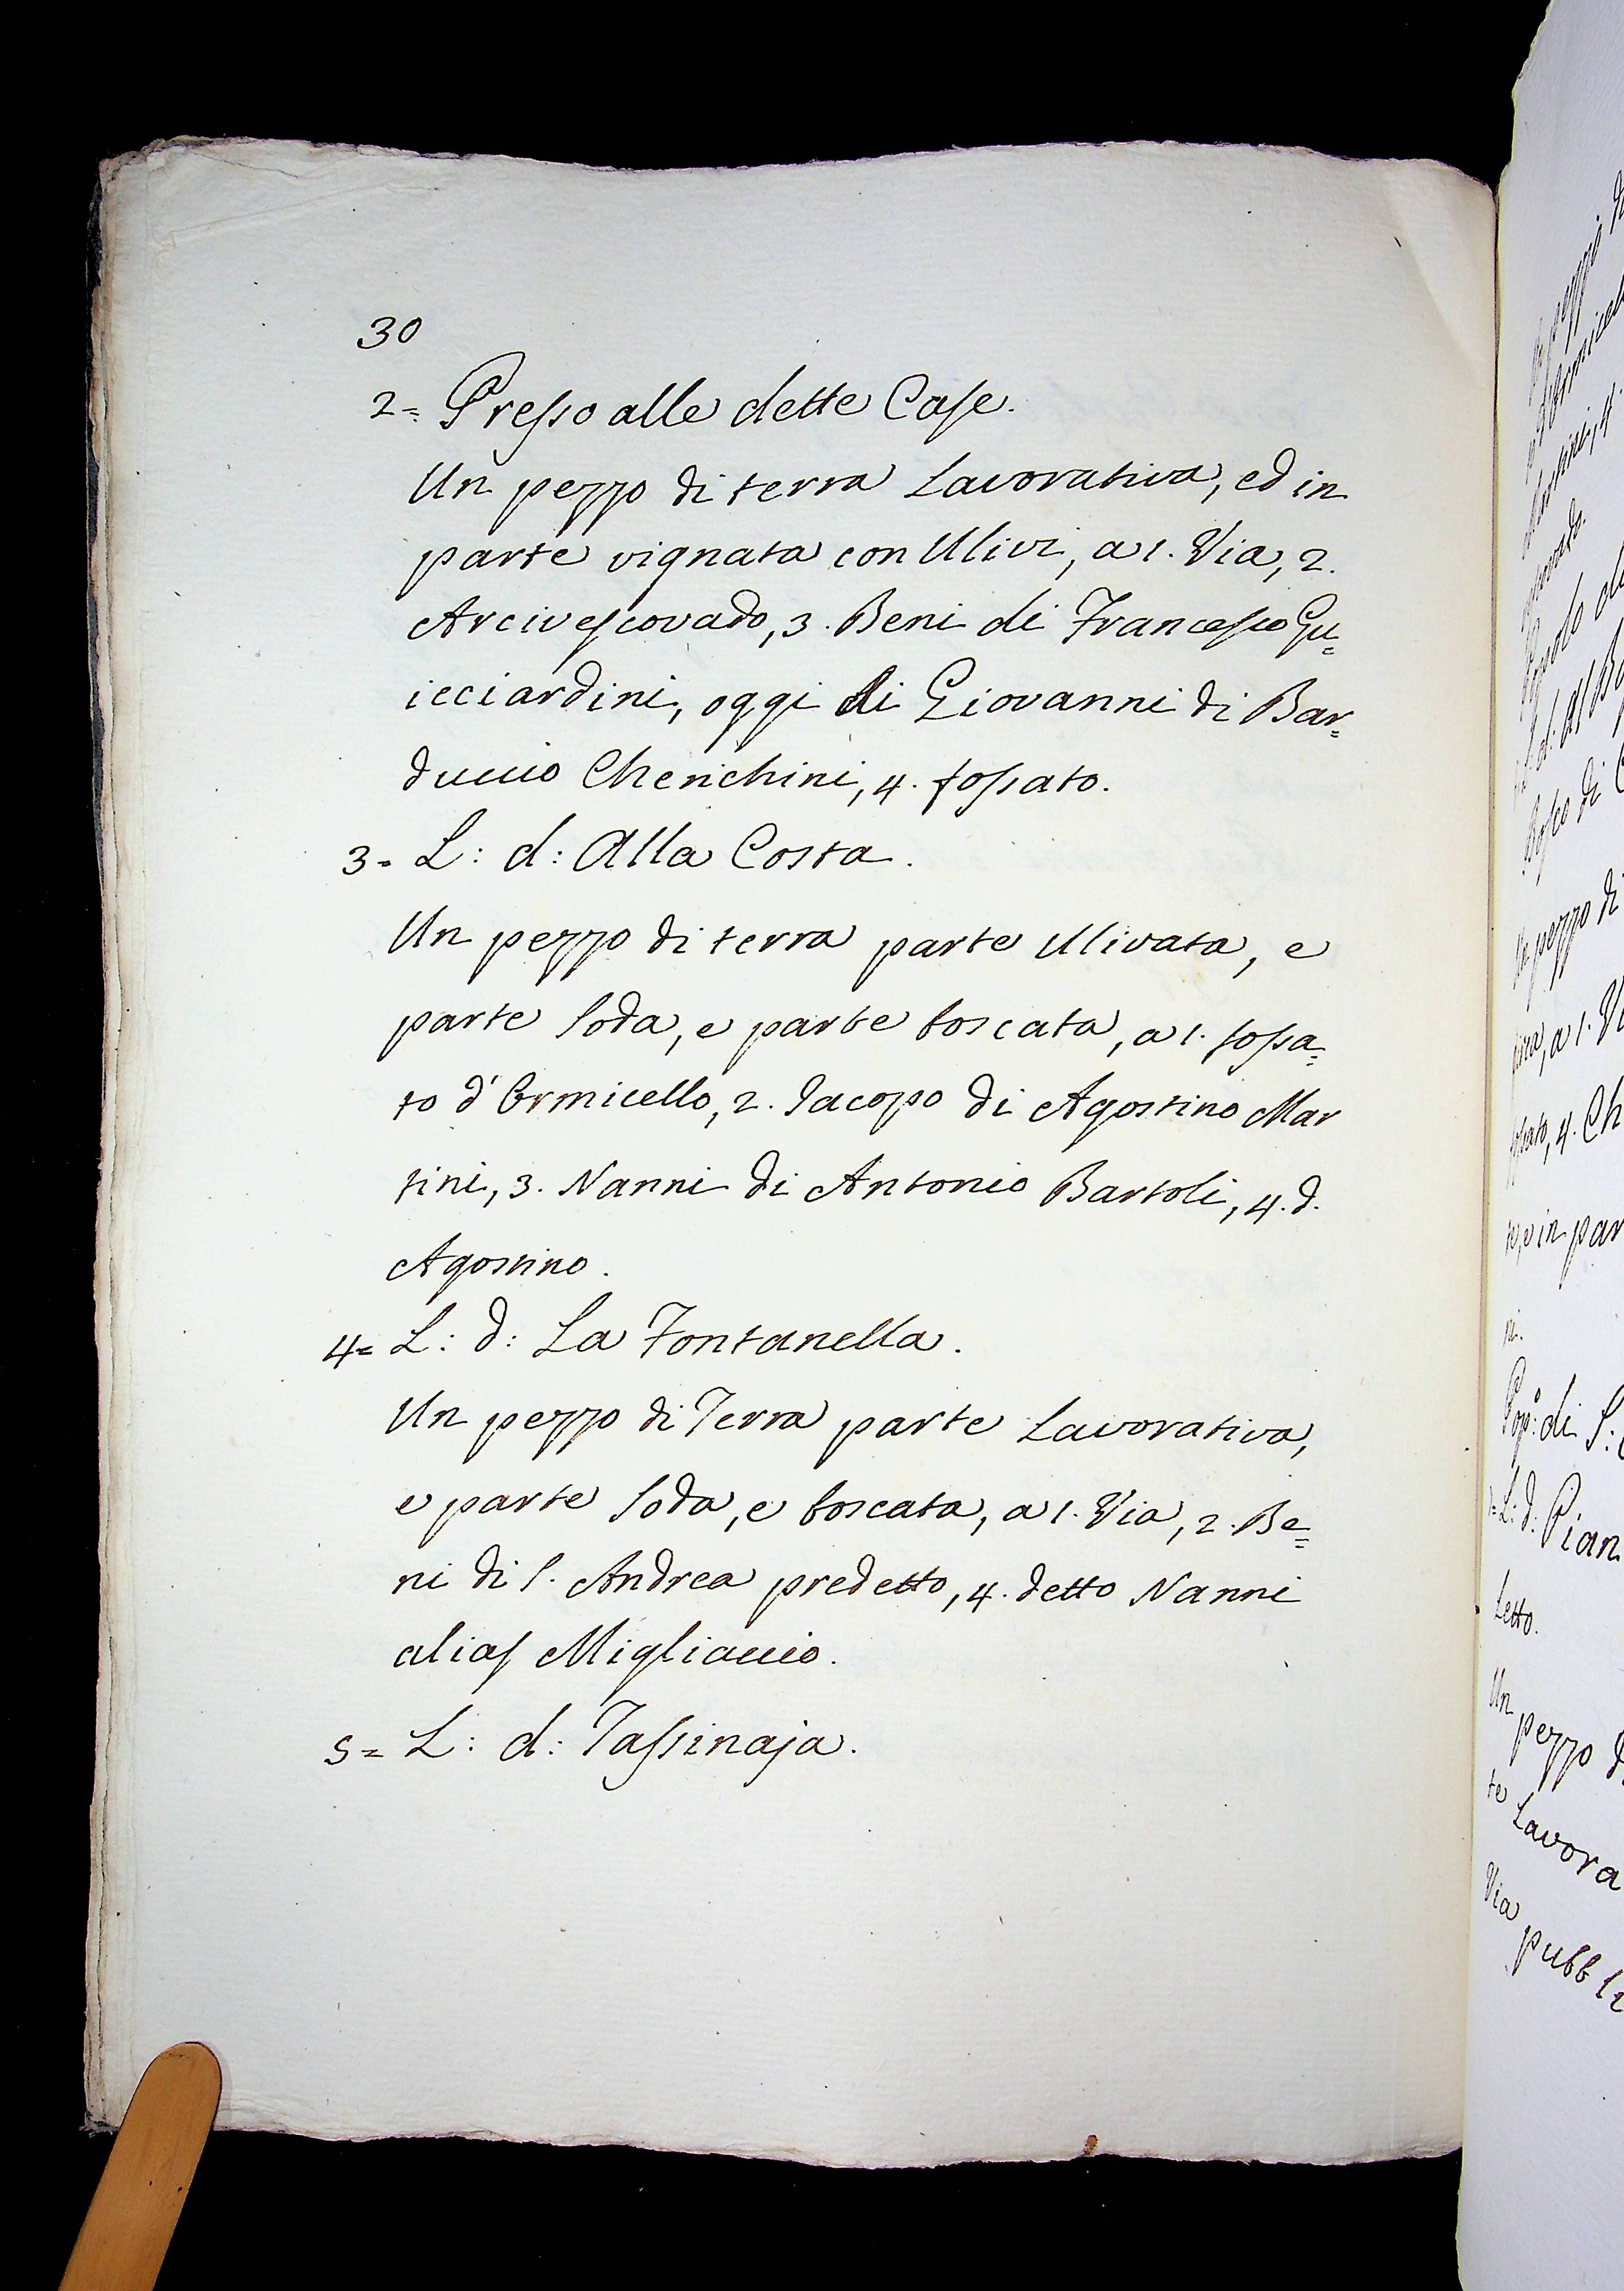 30
2= Presso alle dette Case.
Un pezzo di terra Lavorativa, ed in
parte vignata con Ulivi, a 1. Via, 2.
Arcivescovado, 3. Beni di Francesco Gu=
icciardini, oggi di Giovanni di Bar=
duccio Cherichini, 4. fossato.
3= L: d: Alla Costa.
Un pezzo di terra parte Ulivata, e
parte soda, e parte boscata, a 1. fossa=
to d'Ormicello, 2. Jacopo di Agostino Mar
tini, 3. Nanni di Antonio Bartoli, 4. d.
Agostino.
4= L: d: La Fontanella.
Un pezzo di Terra parte Lavorativa,
e parte soda, e boscata, a 1. Via, 2. Be=
ni di S. Andrea predetto, 4. detto Nanni
alias Migliaccio.
5= L: d: Tassinaja.
pezzo di
a 1. Vi
4. Ch
e in par
ni.
Pop.º di S:
L: d: Pian
Letto.
Un pezzo d
te Lavora
Via pubbli